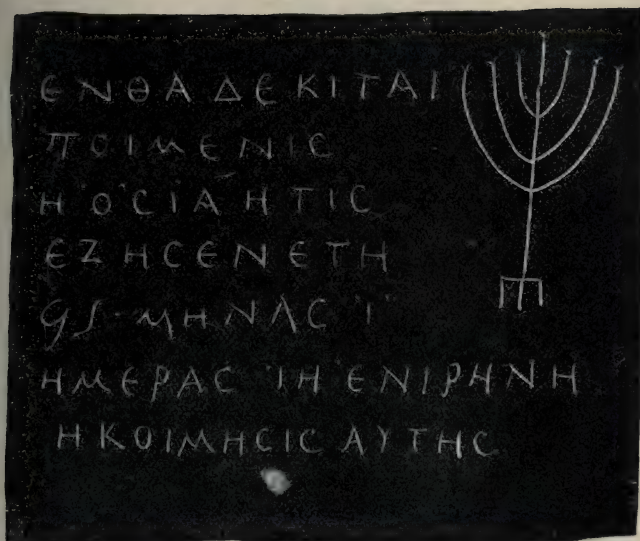 ΕΝΘΑ ΔΕ ΚΙΤΑΙ
ΠΟΙΜΕΝΙC
Η ΟCΙΑ ΗΤΙC
ΕΖΗCΕΝ ΕΤΗ
ϤϚ ΜΗΝΑC Ι
ΗΜΕΡΑC ΙΗ ΕΝ ΙΡΗΝΗ
Η ΚΟΙΜΗCΙC ΑΥΤΗC